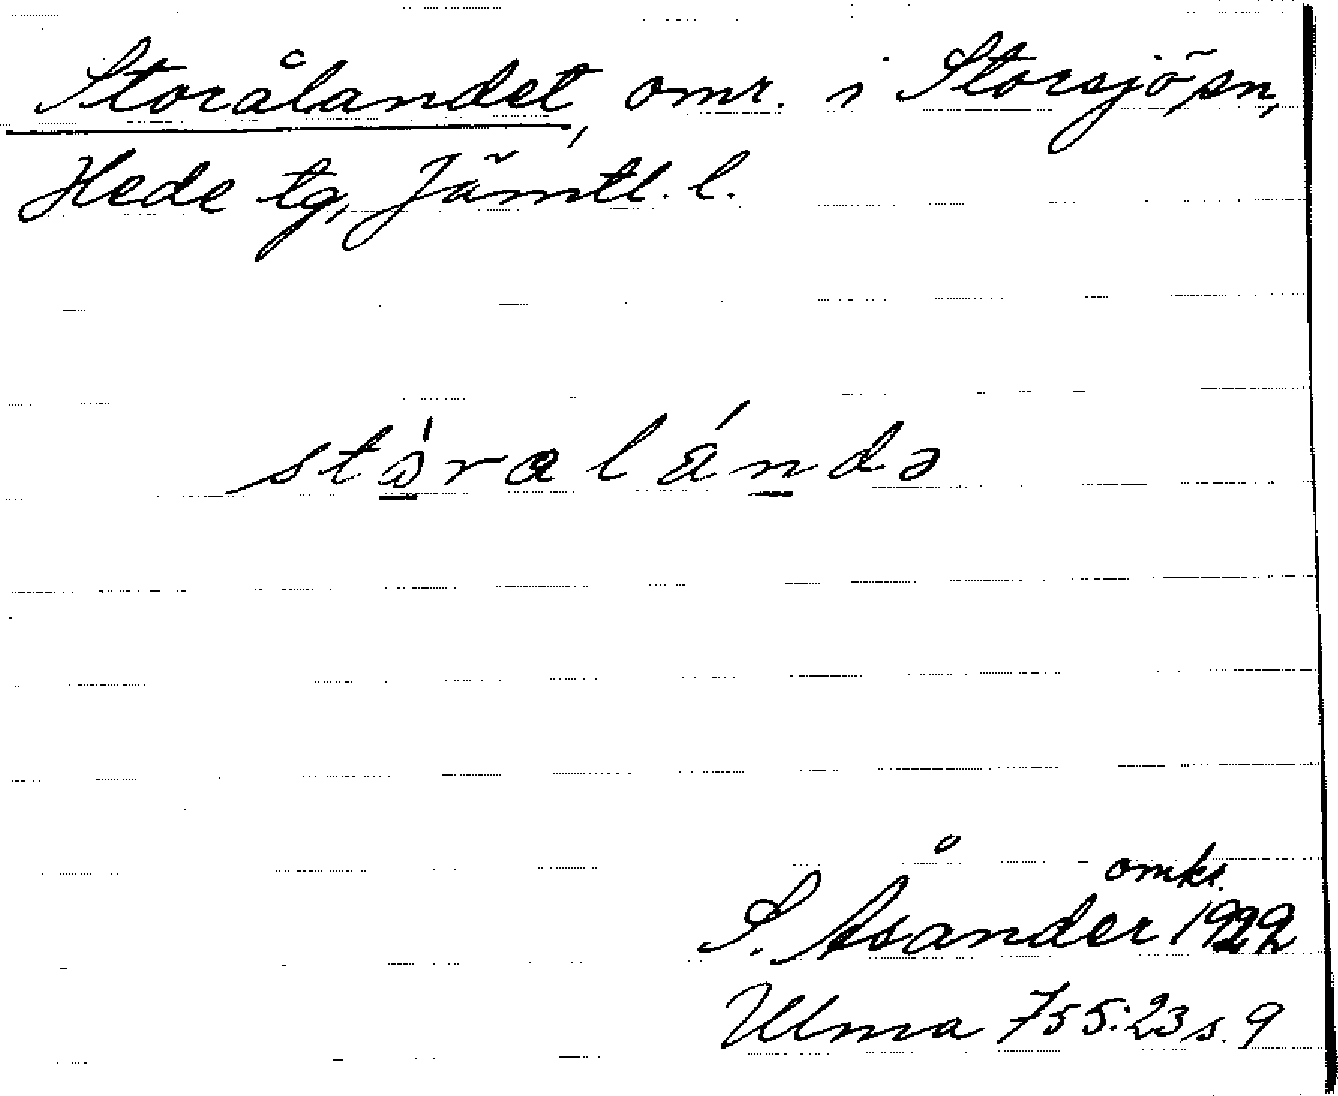 Storålandet, omr. i Storsjö sn,
Hede tg, Jämtl. l.
stòralándə
omkr.
S. Åsander 1922
Ulma 755:23 s. 9